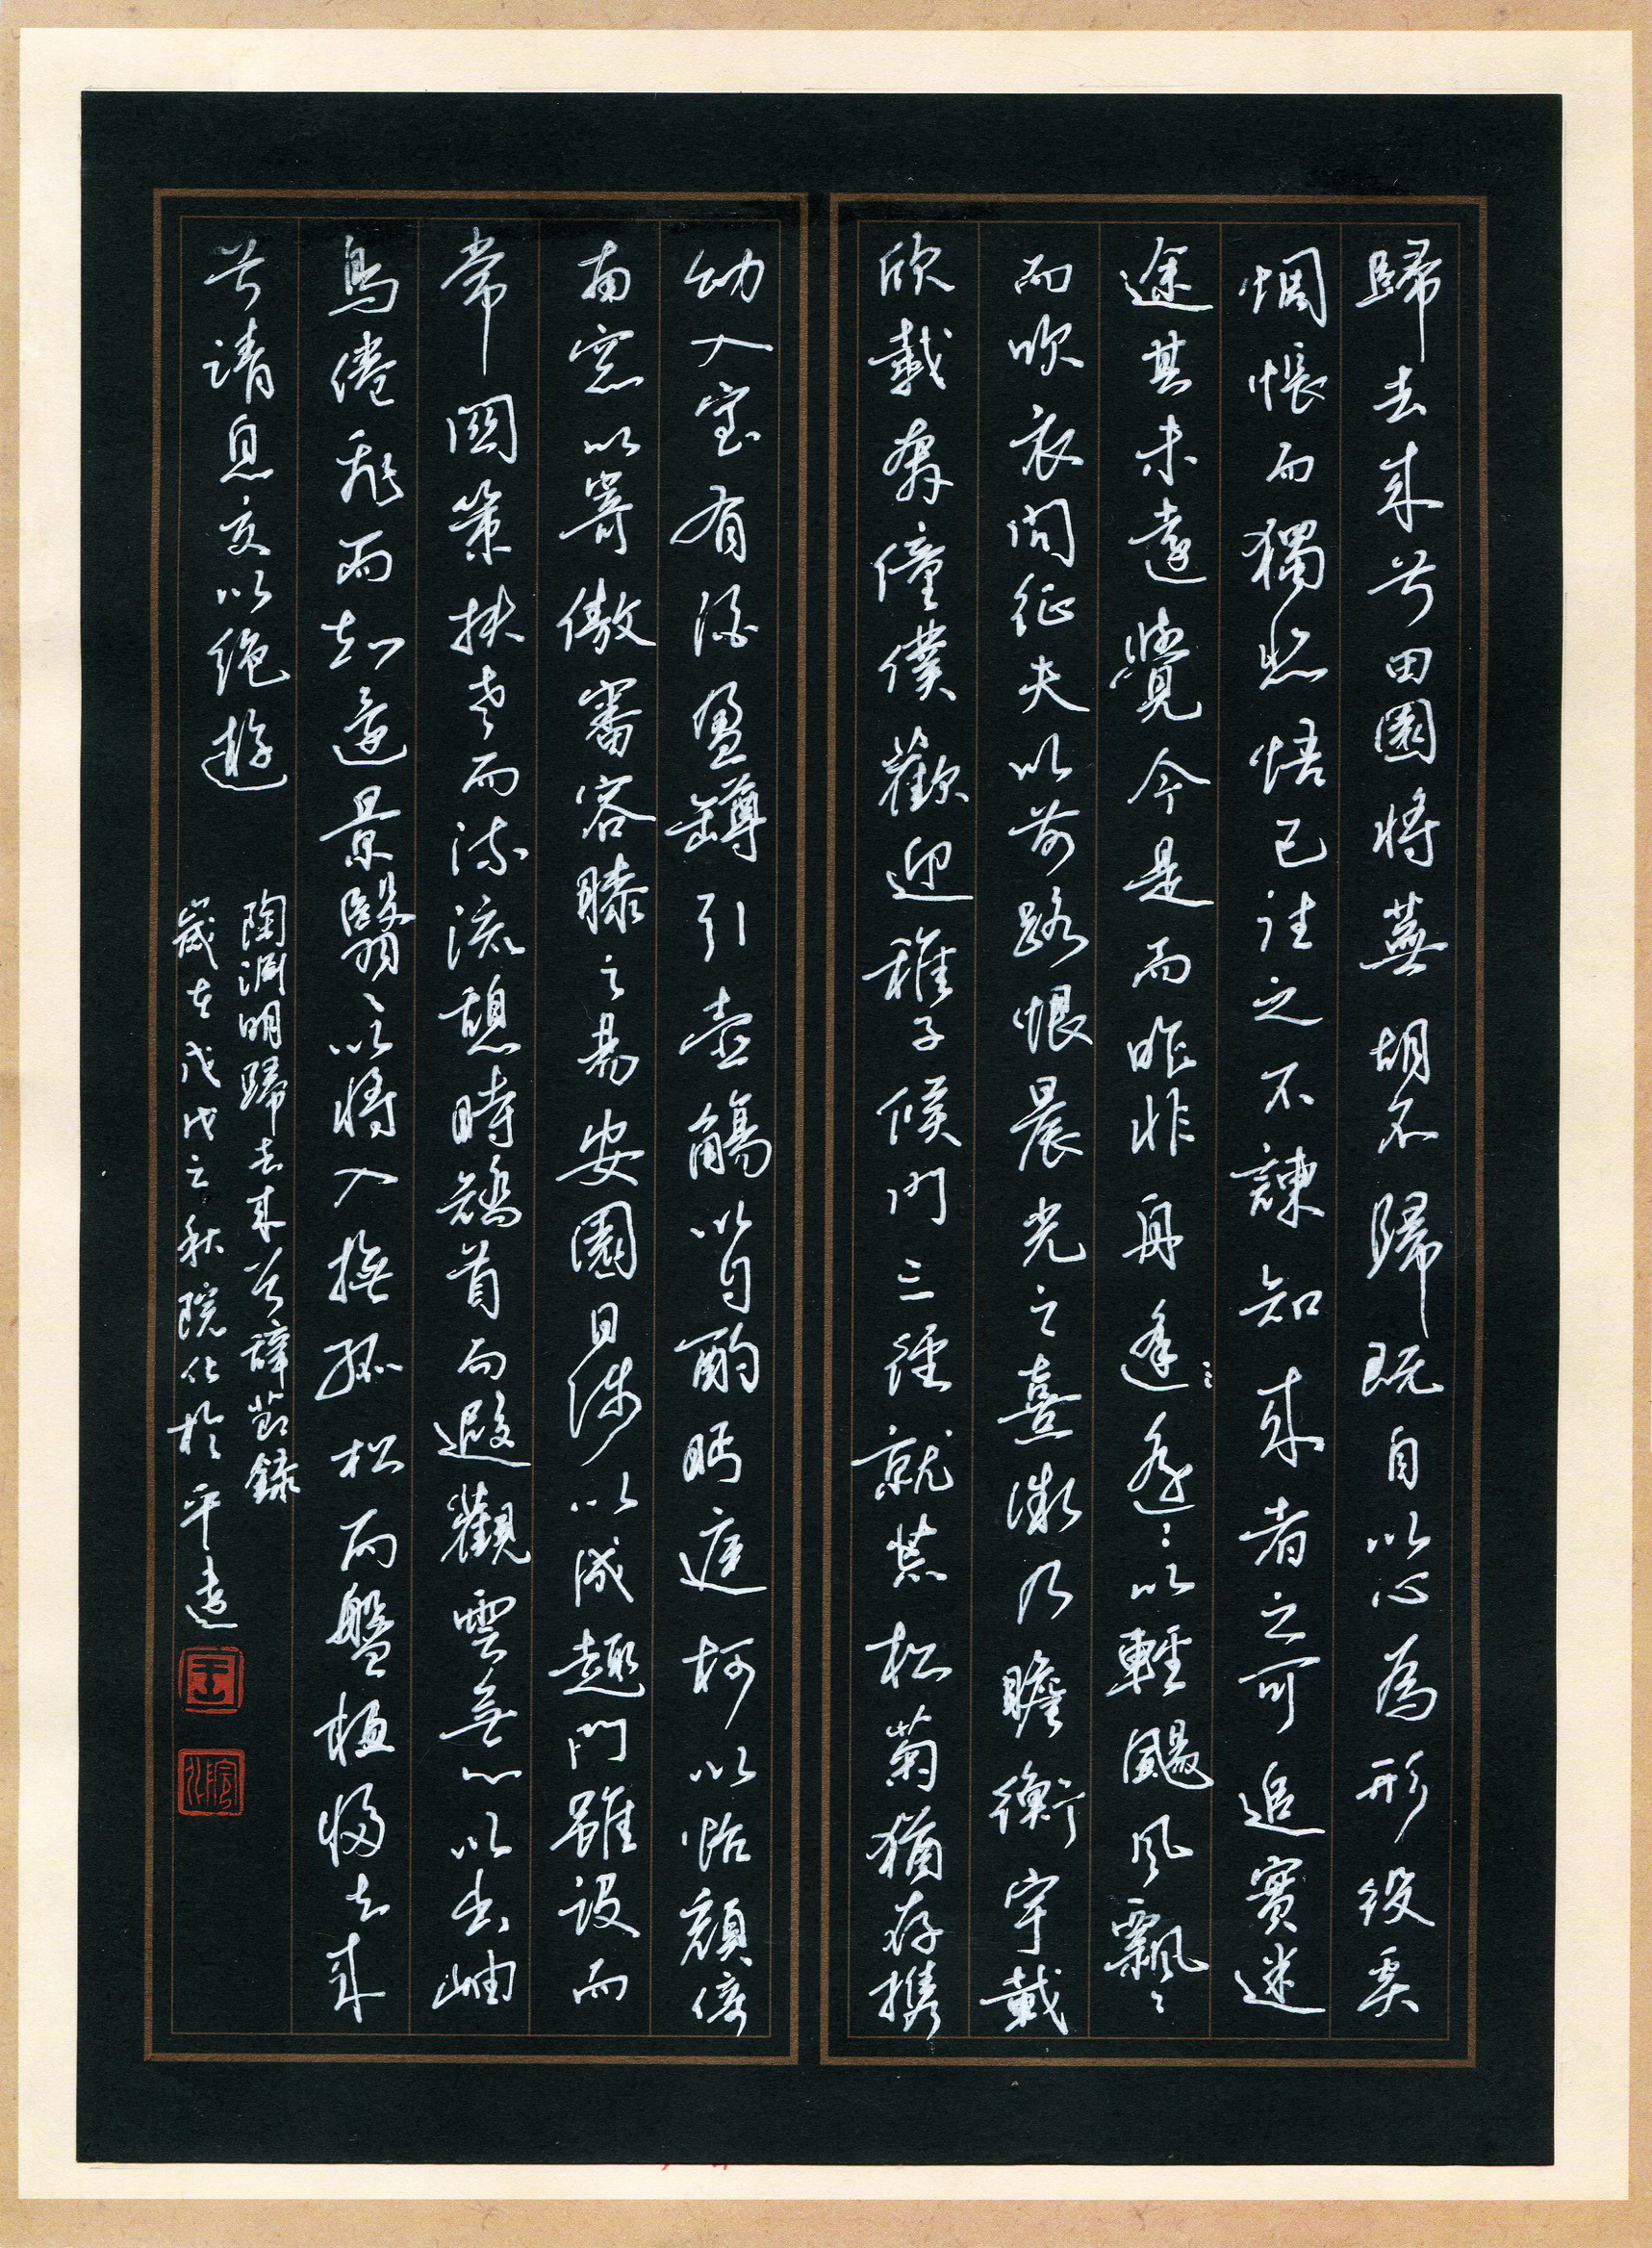 歸去来兮田園將蕪胡不歸既自以心為形役奚
惆悵而獨悲悟已往之不諫知来者之可追實迷
途其未遠覺今是而昨非舟逢遙〻以輕颺風飄〻
而吹衣問征夫以前路恨晨光之熹微乃瞻衡宇載
欣載奔僮僕歡迎稚子候門三徑就荒松菊猶存携
幼入室有酒盈罇引壺觴以自酌眄庭柯以怡顏倚
南窓以寄傲審容膝之易安園日涉以成趣門雖設而
常關策扶老而流憩時矯首而遐觀雲無心以出岫
鳥倦飛而知還景翳〻以將入撫孤松而盤桓歸去来
兮請息交以絶遊
陶淵明歸去来兮辭節録
歲在戊戌之秋院化於平遠
王